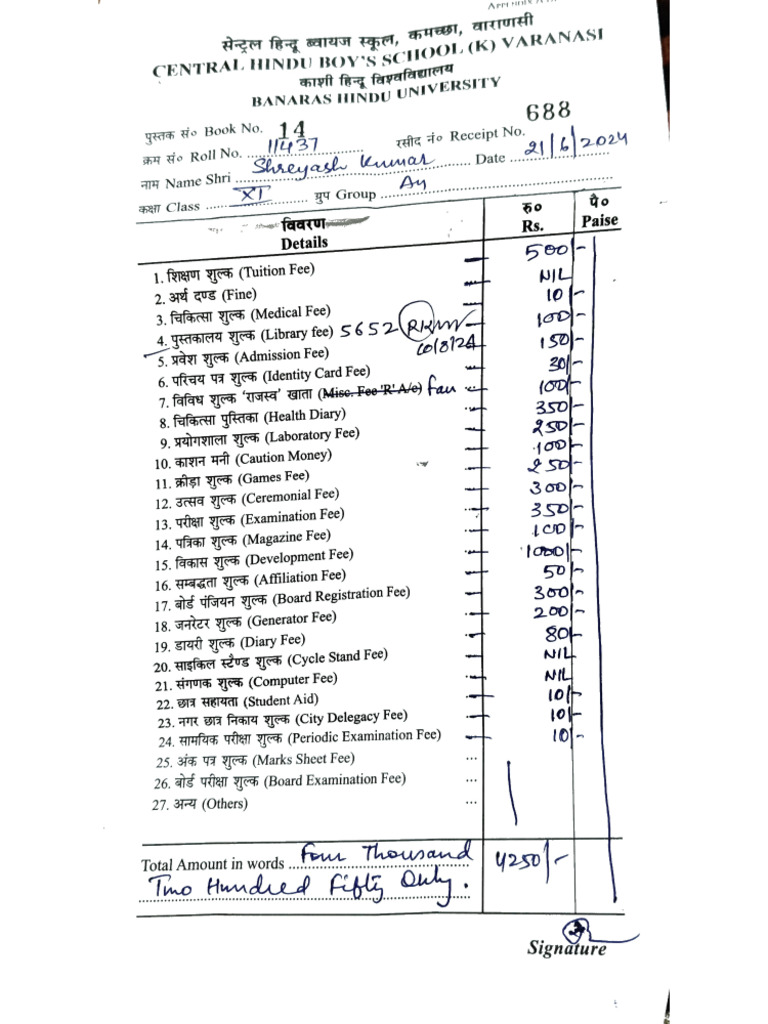 सेन्ट्रल हिन्दू ब्वायज स्कूल, कमच्छा, वाराणसी
CENTRAL HINDU BOY'S SCHOOL (K) VARANASI
काशी हिन्दू विश्वविद्यालय
BANARAS HINDU UNIVERSITY
पुस्तक सं० Book No. 14 688
क्रम सं० Roll No. 11437 रसीद नं० Receipt No.
नाम Name Shri Shreyash Kumar Date 21/6/2024
कक्षा Class XI ग्रुप Group
विवरण रु० पै०
Details Rs. Paise
1. शिक्षण शुल्क (Tuition Fee) 500/-
2. अर्थ दण्ड (Fine) NIL
3. चिकित्सा शुल्क (Medical Fee) 10/-
4. पुस्तकालय शुल्क (Library fee) 5652 100/-
5. प्रवेश शुल्क (Admission Fee) 150/-
6. परिचय पत्र शुल्क (Identity Card Fee) 30/-
7. विविध शुल्क 'राजस्व' खाता (Misc. Fee 'R' A/c) fan 100/-
8. चिकित्सा पुस्तिका (Health Diary) 350/-
9. प्रयोगशाला शुल्क (Laboratory Fee) 250/-
10. काशन मनी (Caution Money) 100/-
11. क्रीड़ा शुल्क (Games Fee) 250/-
12. उत्सव शुल्क (Ceremonial Fee) 300/-
13. परीक्षा शुल्क (Examination Fee) 350/-
14. पत्रिका शुल्क (Magazine Fee) 100/-
15. विकास शुल्क (Development Fee) 1000/-
16. सम्बद्धता शुल्क (Affiliation Fee) 50/-
17. बोर्ड पंजियन शुल्क (Board Registration Fee) 300/-
18. जनरेटर शुल्क (Generator Fee) 200/-
19. डायरी शुल्क (Diary Fee) 80/-
20. साइकिल स्टैण्ड शुल्क (Cycle Stand Fee) NIL
21. संगणक शुल्क (Computer Fee) NIL
22. छात्र सहायता (Student Aid) 10/-
23. नगर छात्र निकाय शुल्क (City Delegacy Fee) 10/-
24. सामयिक परीक्षा शुल्क (Periodic Examination Fee) 10/-
25. अंक पत्र शुल्क (Marks Sheet Fee)
26. बोर्ड परीक्षा शुल्क (Board Examination Fee)
27. अन्य (Others)
Total Amount in words Four Thousand 4250/-
Two Hundred Fifty Only.
Signature